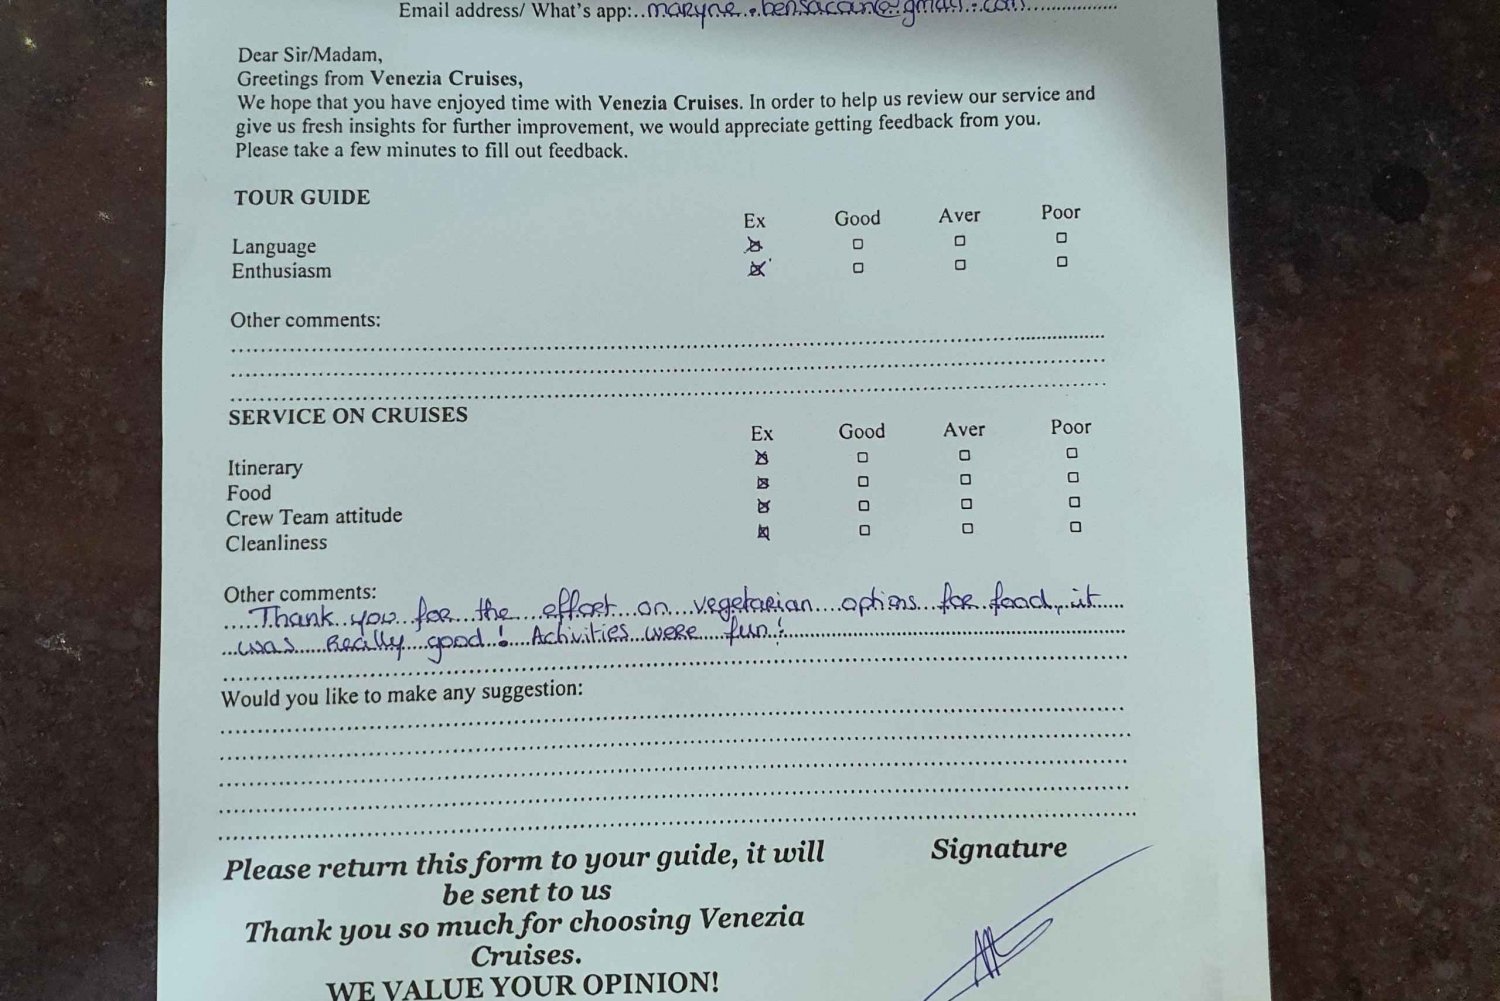 Email address/ What's app: maryne.bensacan@gmail.com
Dear Sir/Madam,
Greetings from Venezia Cruises,
We hope that you have enjoyed time with Venezia Cruises. In order to help us review our service and
give us fresh insights for further improvement, we would appreciate getting feedback from you.
Please take a few minutes to fill out feedback.
TOUR GUIDE
Ex Good Aver Poor
Language
Enthusiasm
Other comments:
SERVICE ON CRUISES
Ex Good Aver Poor
Itinerary
Food
Crew Team attitude
Cleanliness
Other comments:
Thank you for the effort on vegetarian options for food, it
was really good! Activities were fun!
Would you like to make any suggestion:
Please return this form to your guide, it will
be sent to us
Thank you so much for choosing Venezia
Cruises.
WE VALUE YOUR OPINION!
Signature